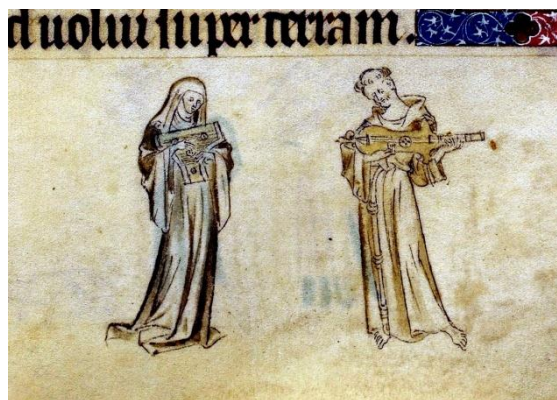 d uolui super terram.